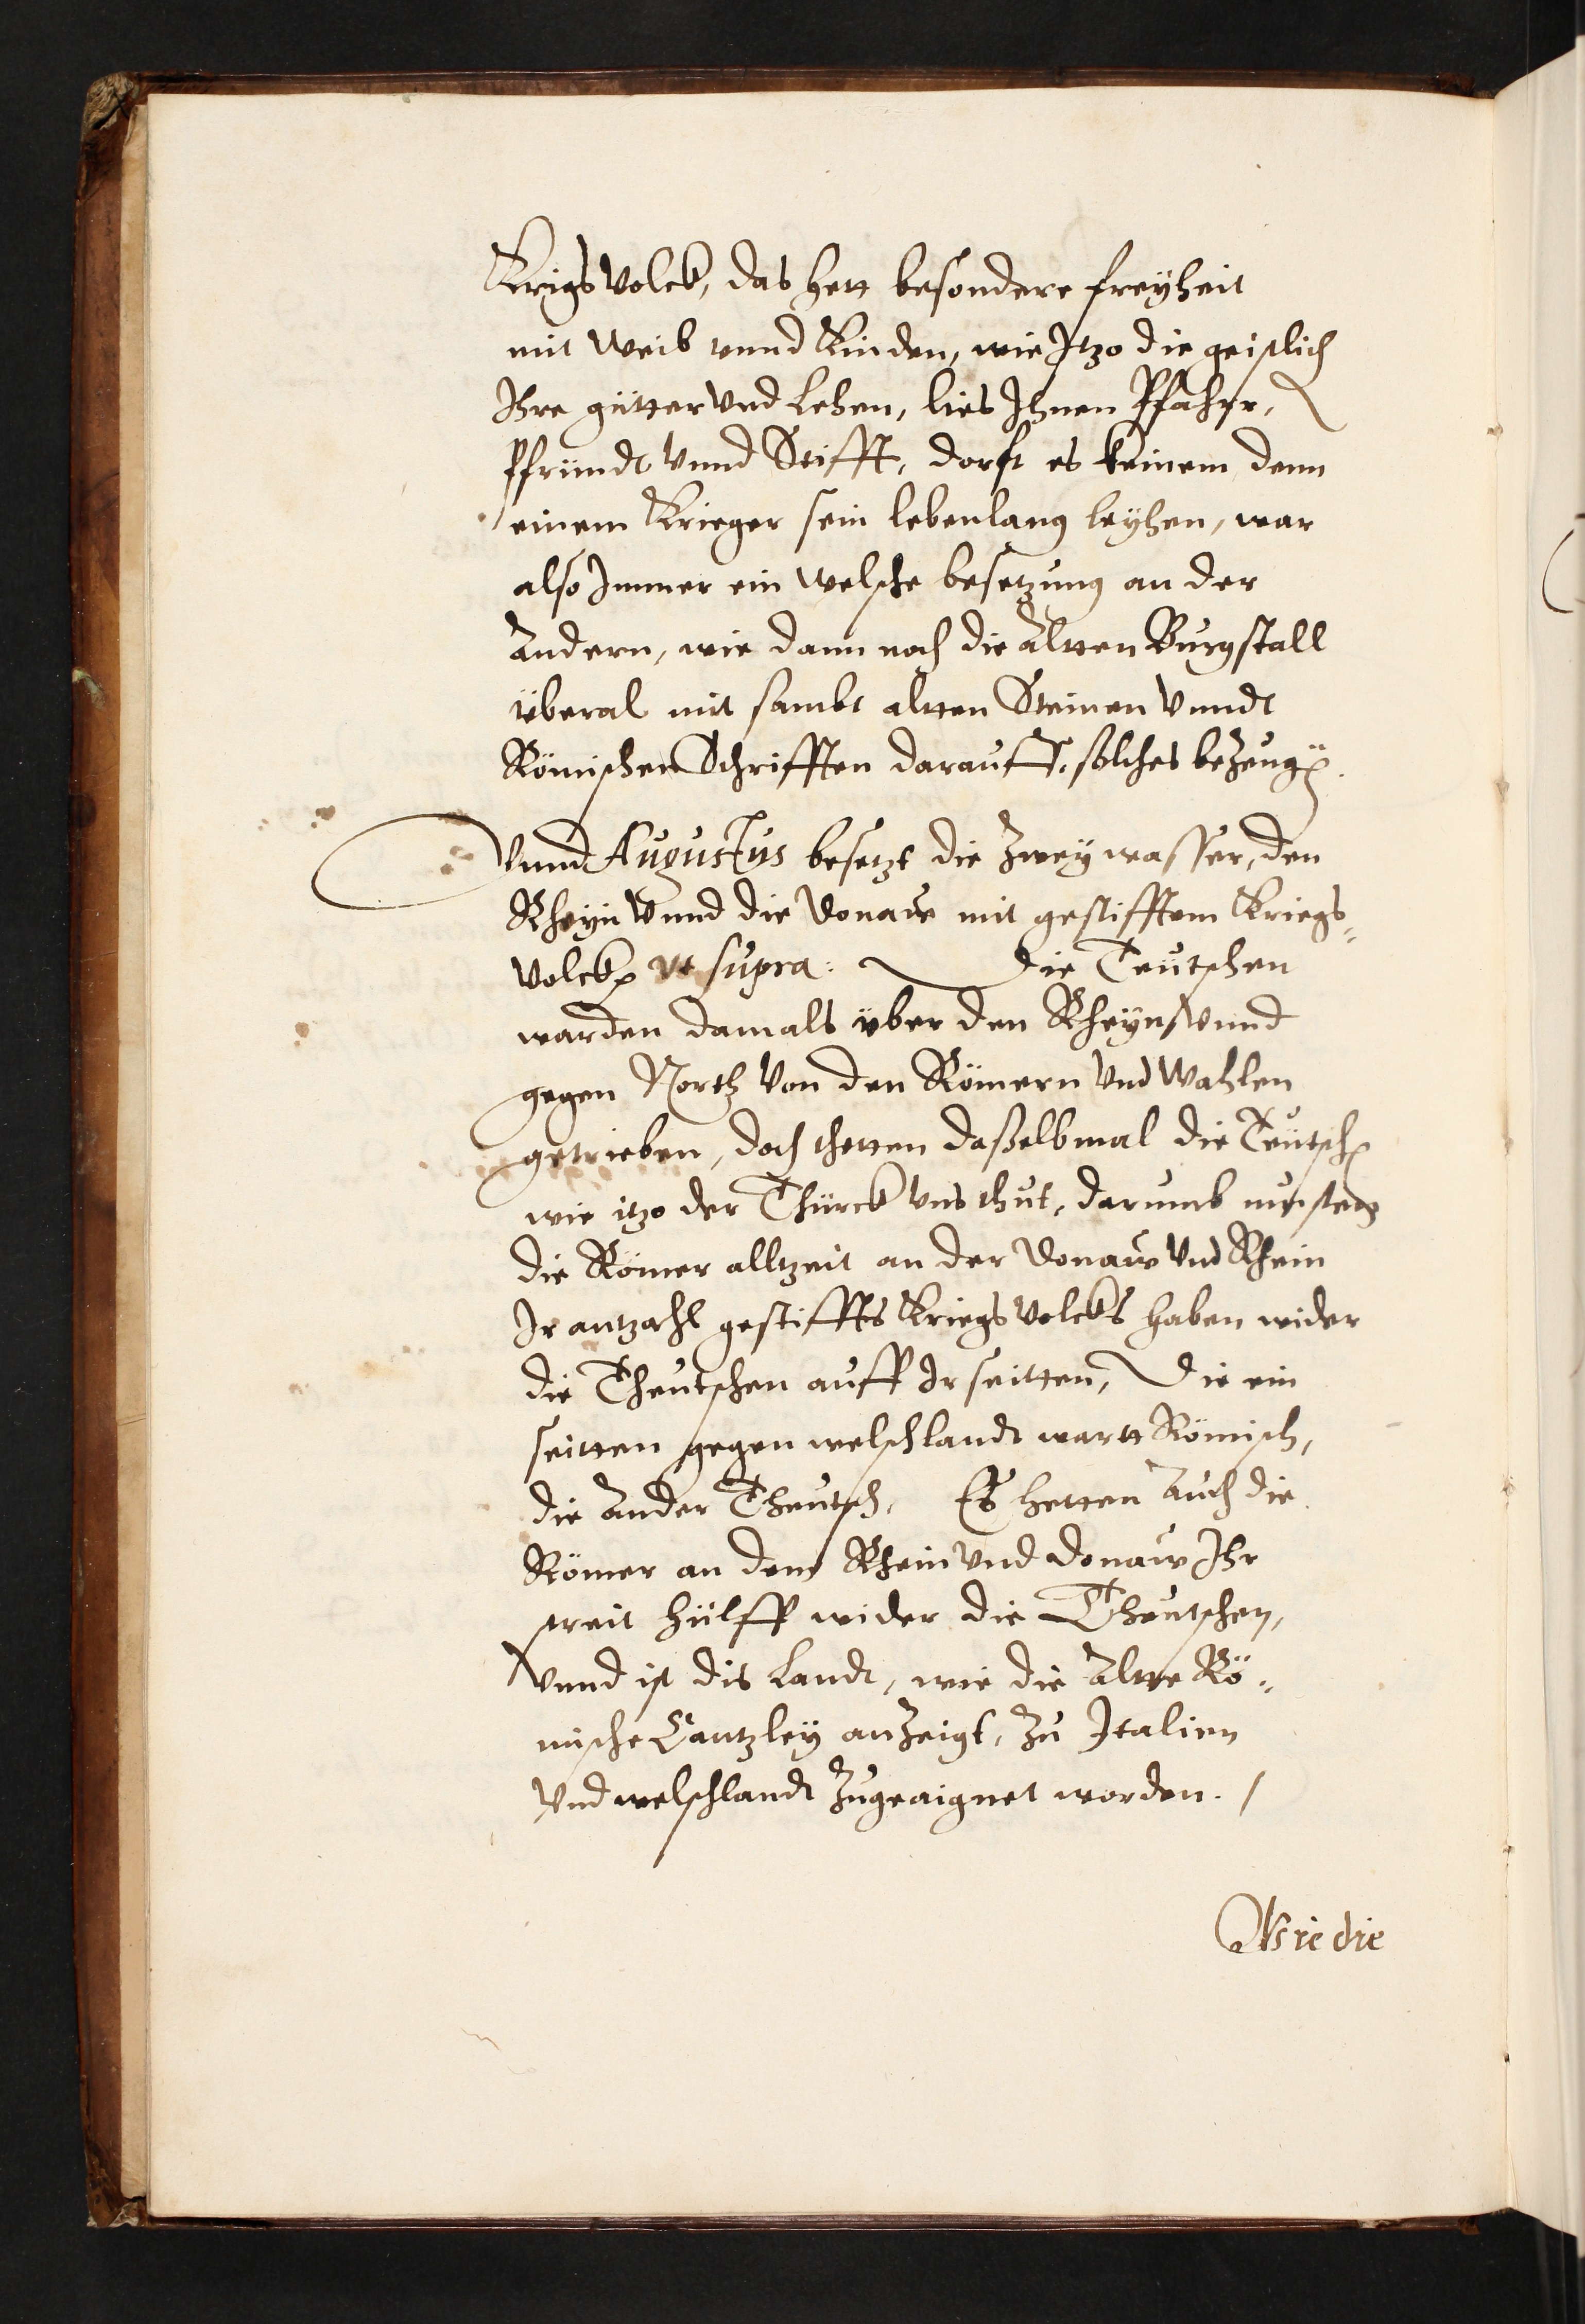 Krigs Volck, das hett besondere freyheit
mit Weib vnnd Kinden, wie Itzo die geistlich
Ihre gütter Vnd Lehen, lies Ihnen Pfahr,
Pfründt Vnnd Stifft, dorft es keinem denn
einem Krieger sein lebenlang leyhen, war
also Immer ein Welsche besetzung an der
Andern, wie dann noch die Altten Burgstall
vberal mit sambt altten Steinen Vnndt
Römischen Schrifften darauff, solches bezeugen.
Vnnd Augustus besetzt die Zwey wasser, den
Rheyn Vnnd die Donaw mit gestifftem Kriegs=
Volck vt supra: Die Teutschen
warden damals vber den Rheyn Vnnd
gegen Northt Von den Römern Vnd Wahlen
getrieben, doch thetten daßelbmal die Teutschen
wie itzo der Thürck Vns thut, darumb musten
die Römer alltzeit an der Donaw Vnd Rhein
Ir antzahl gestiffts Kriegs Volcks haben wider
die Theutschen auff Ir seitten, Die ein
seitten gegen welschlandt wartt Römisch,
die Ander Theutsch, Es hetten Auch die
Römer an dem Rhein Vnd Donaw Ihr
streit hülff wider die Theutschen,
Vnnd ist dis Landt, wie die Altte Rö=
mische Cantzley anzeigt, Zu Italien
Vnd welschlandt Zugeaignet worden. /
Wie die